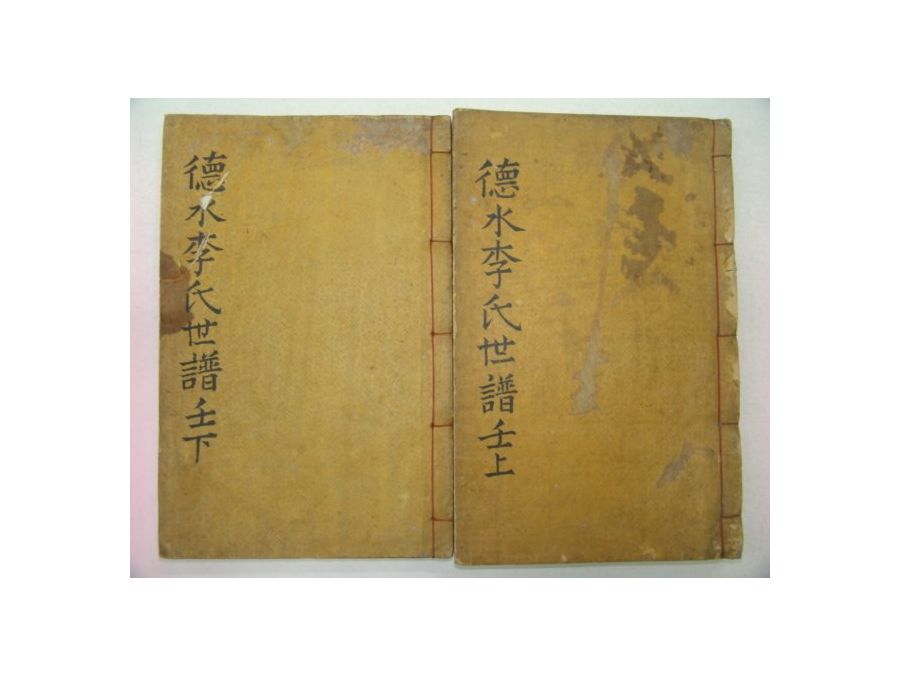 德水李氏世譜 壬上
德水李氏世譜 壬下